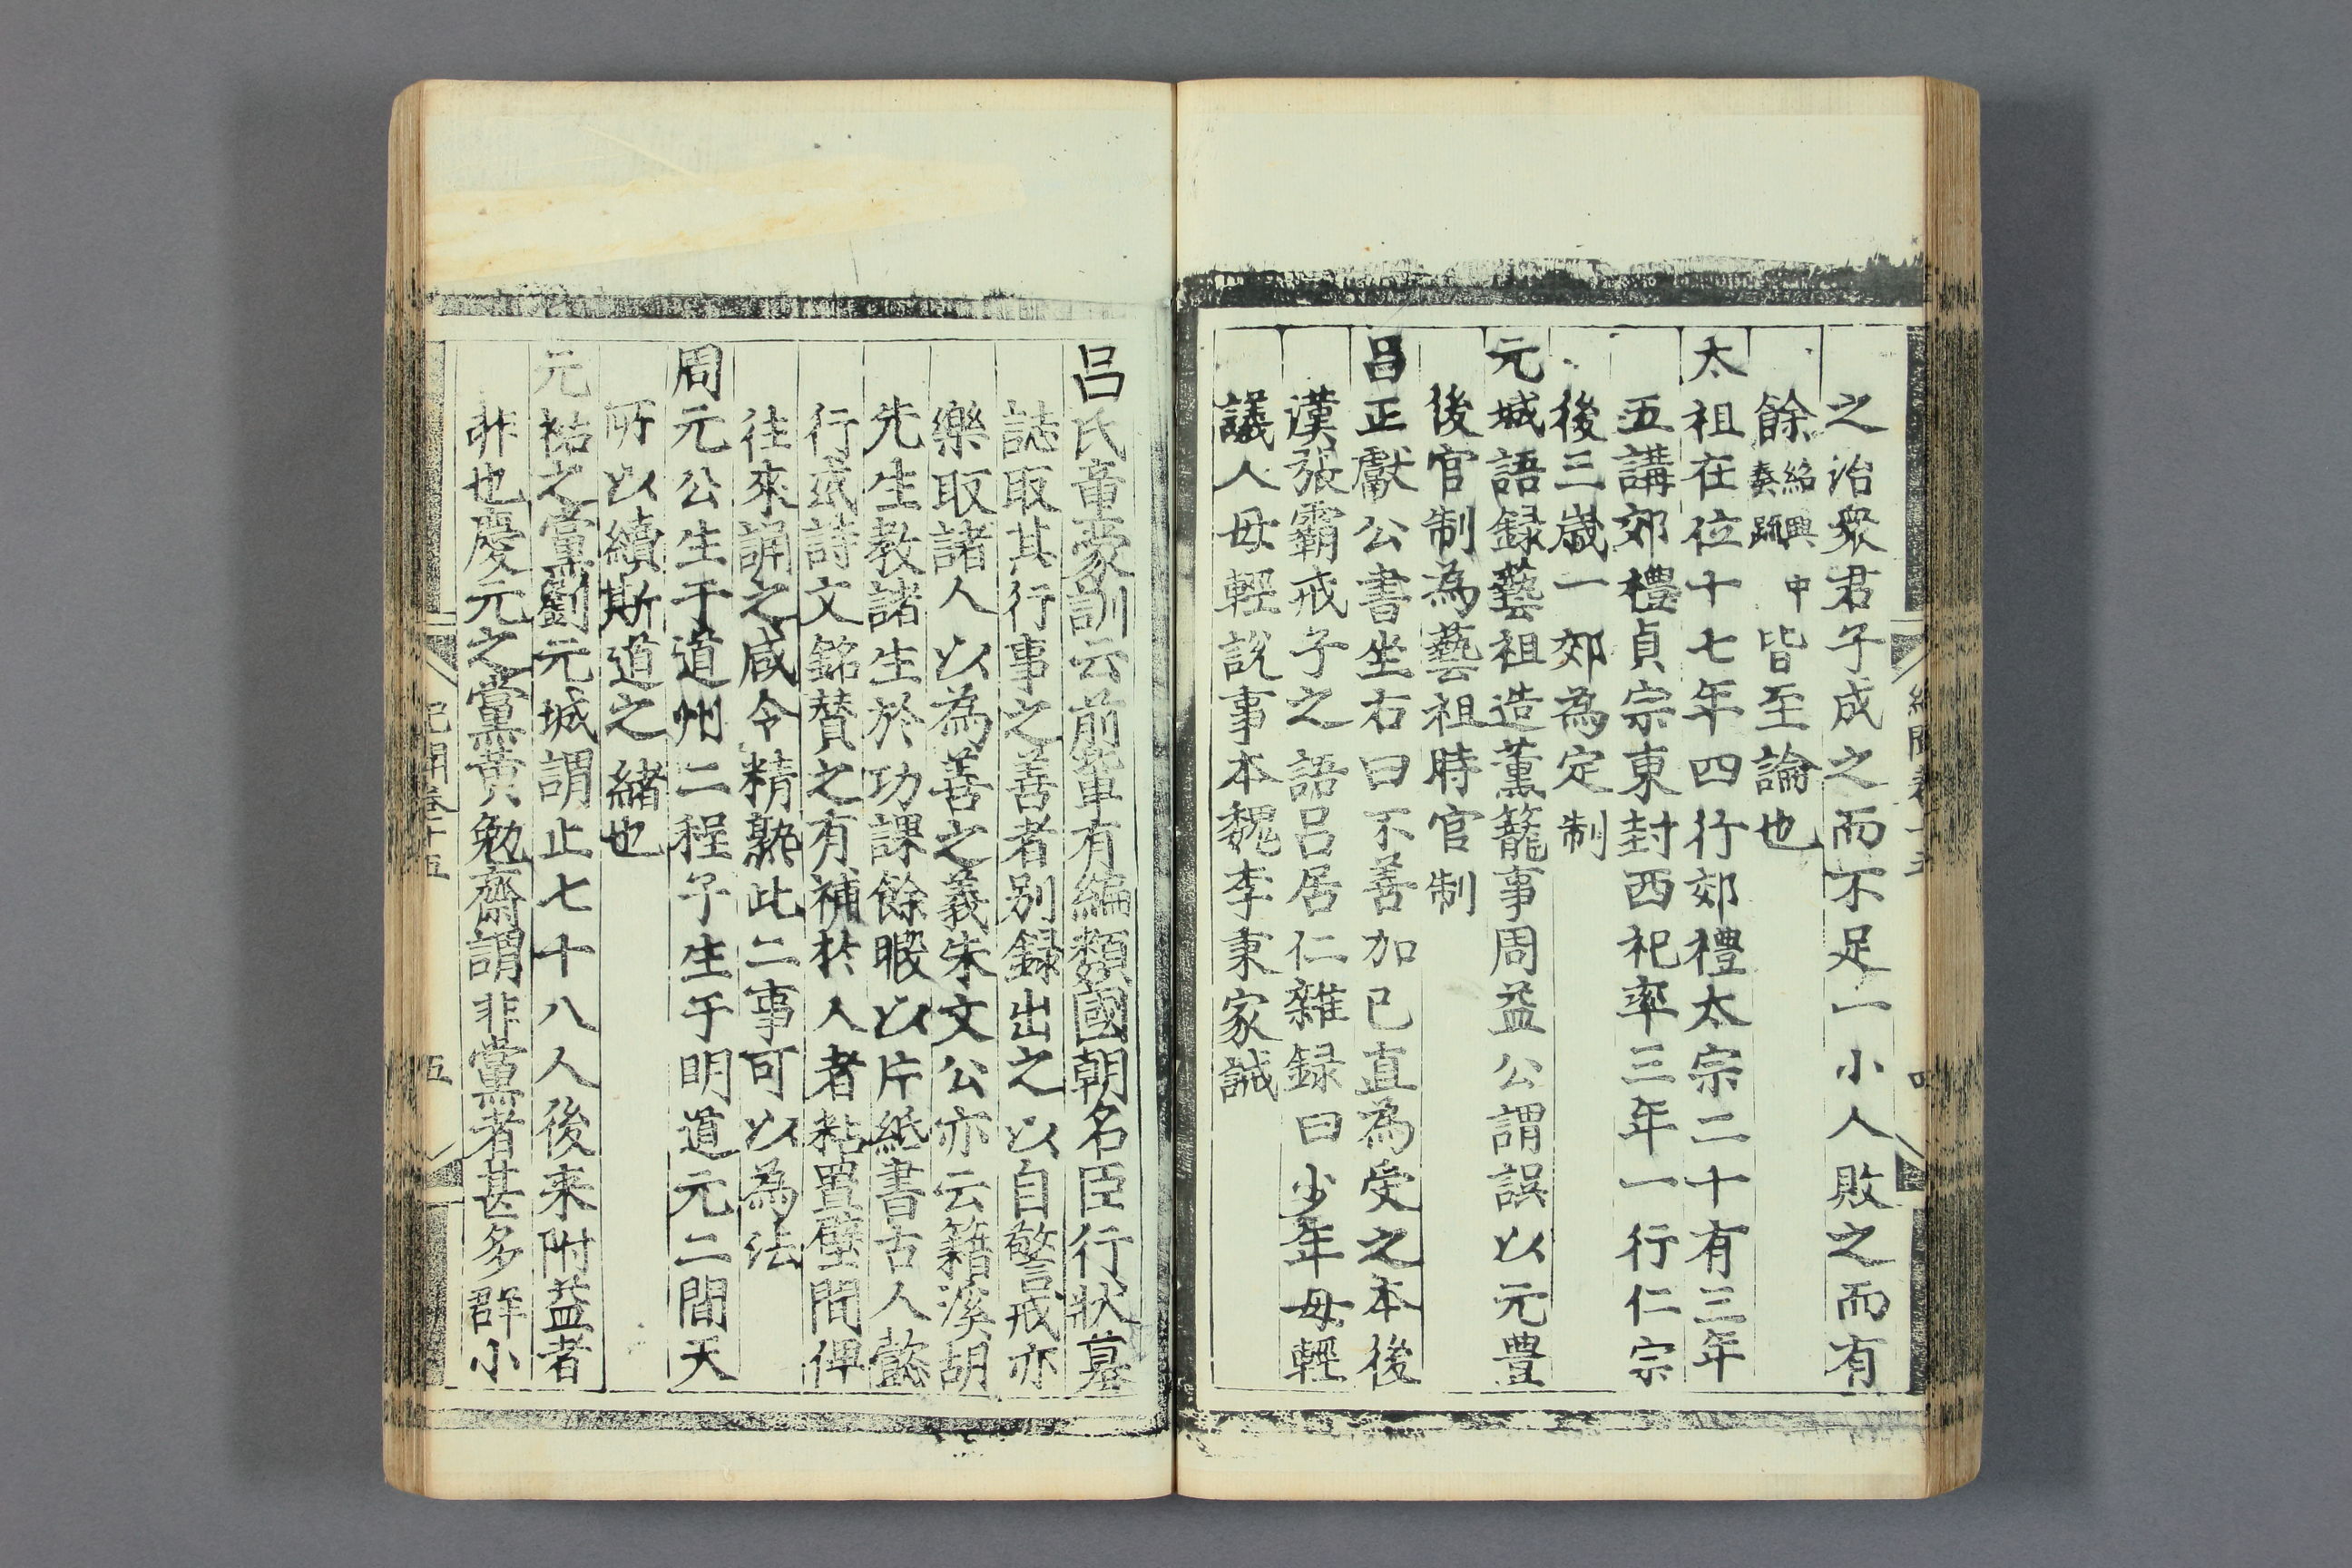 之治衆君子成之而不足一小人敗之而有
餘紹興中奏疏皆至論也
太祖在位十七年四行郊禮太宗二十有三年
五講郊禮貞宗東封西祀率三年一行仁宗
後三嵗一郊為定制
元城語録藝祖造薰籠事周益公謂誤以元豊
後官制為藝祖時官制
吕正獻公書坐右曰不善加已直為受之本後
漢張霸戒子之語吕居仁雜録曰少年毋輕
議人毋輕説事本魏李秉家誡
吕氏童蒙訓云前輩有編類國朝名臣行狀墓
誌取其行事之善者别録出之以自警戒亦
樂取諸人以為善之義朱文公亦云籍溪胡
先生教諸生於功課餘暇以片紙書古人懿
行或詩文銘賛之有補於人者粘置壁間俾
往來誦之咸令精熟此二事可以為法
周元公生于道州二程子生于明道元二間天
所以續斯道之緒也
元祐之黨劉元城謂止七十八人後来附益者
非也慶元之黨黄勉齋謂非黨者甚多群小
紀聞卷十五
五